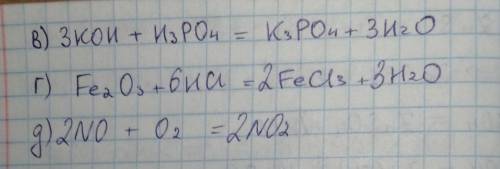 в) 3KOH + H3PO4 = K3PO4 + 3H2O
г) Fe2O3 + 6HCl = 2FeCl3 + 3H2O
д) 2NO + O2 = 2NO2